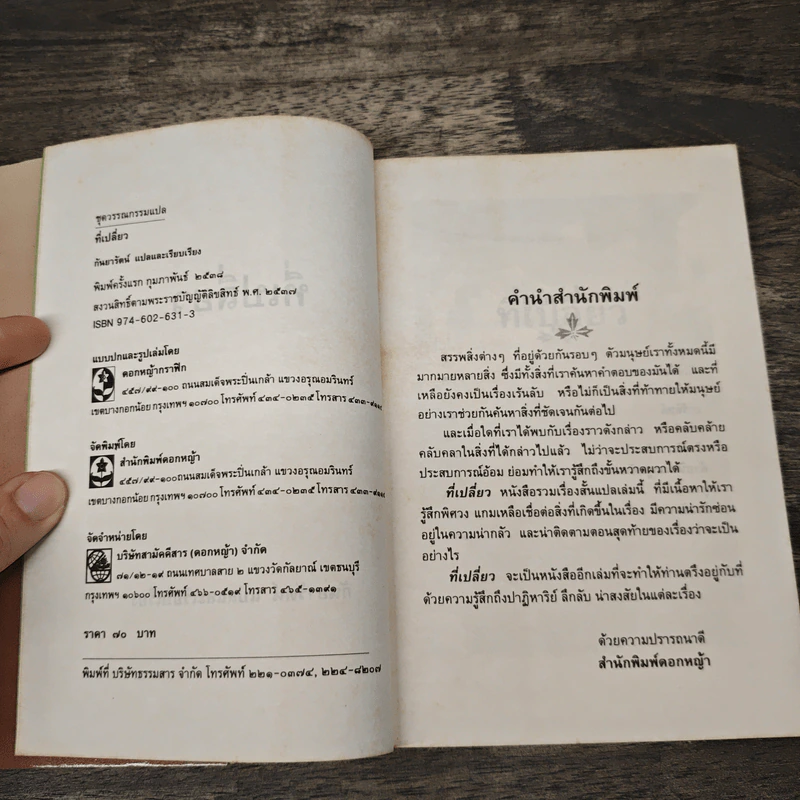 ชุดวรรณกรรมแปล
ที่เปลี่ยว
กันยารัตน์ แปลและเรียบเรียง
พิมพ์ครั้งแรก กุมภาพันธ์ ๒๕๓๘
สงวนสิทธิ์ตามพระราชบัญญัติลิขสิทธิ์ พ.ศ. ๒๕๓๗
ISBN 974-602-631-3
แบบปกและรูปเล่มโดย
ดอกหญ้ากราฟิก
๔๕๗/๙๙-๑๐๐ ถนนสมเด็จพระปิ่นเกล้า แขวงอรุณอมรินทร์
เขตบางกอกน้อย กรุงเทพฯ ๑๐๗๐๐ โทรศัพท์ ๔๓๔-๐๒๓๕ โทรสาร
จัดพิมพ์โดย
สำนักพิมพ์ดอกหญ้า
๔๕๗/๙๙-๑๐๐ถนนสมเด็จพระปิ่นเกล้า แขวงอรุณอมรินทร์
เขตบางกอกน้อย กรุงเทพฯ ๑๐๗๐๐ โทรศัพท์ ๔๓๔-๐๒๓๕ โทรสาร
จัดจำหน่ายโดย
บริษัทสามัคคีสาร (ดอกหญ้า) จำกัด
๗๑/๑๒-๑๙ ถนนเทศบาลสาย ๒ แขวงวัดกัลยาณ์ เขตธนบุรี
กรุงเทพฯ ๑๐๖๐๐ โทรศัพท์ ๔๖๖-๐๕๑๙ โทรสาร ๔๖๕-๑๓๙๑
ราคา ๗๐ บาท
พิมพ์ที่ บริษัทธรรมสาร จำกัด โทรศัพท์ ๒๒๑-๐๓๗๔, ๒๒๔-๘๒๐๗
คำนำสำนักพิมพ์
สรรพสิ่งต่างๆ ที่อยู่ด้วยกันรอบๆ ตัวมนุษย์เราทั้งหมดนี้มี
มากมายหลายสิ่ง ซึ่งมีทั้งสิ่งที่เราค้นหาคำตอบของมันได้ และที่
เหลือยังคงเป็นเรื่องเร้นลับ หรือไม่ก็เป็นสิ่งที่ท้าทายให้มนุษย์
อย่างเราช่วยกันค้นหาสิ่งที่ชัดเจนกันต่อไป
และเมื่อใดที่เราได้พบกับเรื่องราวดังกล่าว หรือคลับคล้าย
คลับคลาในสิ่งที่ได้กล่าวไปแล้ว ไม่ว่าจะประสบการณ์ตรงหรือ
ประสบการณ์อ้อม ย่อมทำให้เรารู้สึกถึงขั้นหวาดผวาได้
ที่เปลี่ยว หนังสือรวมเรื่องสั้นแปลเล่มนี้ ที่มีเนื้อหาให้เรา
รู้สึกพิศวง แกมเหลือเชื่อต่อสิ่งที่เกิดขึ้นในเรื่อง มีความน่ารักซ่อน
อยู่ในความน่ากลัว และน่าติดตามตอนสุดท้ายของเรื่องว่าจะเป็น
อย่างไร
ที่เปลี่ยว จะเป็นหนังสืออีกเล่มที่จะทำให้ท่านตรึงอยู่กับที่
ด้วยความรู้สึกถึงปาฏิหาริย์ ลึกลับ น่าสงสัยในแต่ละเรื่อง
ด้วยความปรารถนาดี
สำนักพิมพ์ดอกหญ้า